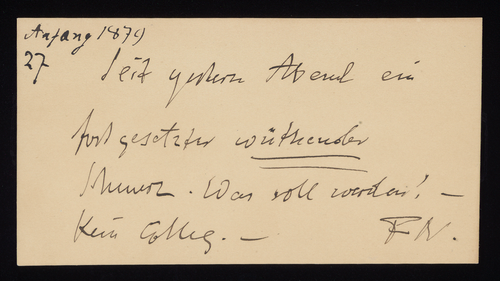 Anfang 1879
27
Seit gestern Abend ein
fortgesetzter wüthender
Schmerz. Was soll werden! –
Kein Colleg. –
F N.